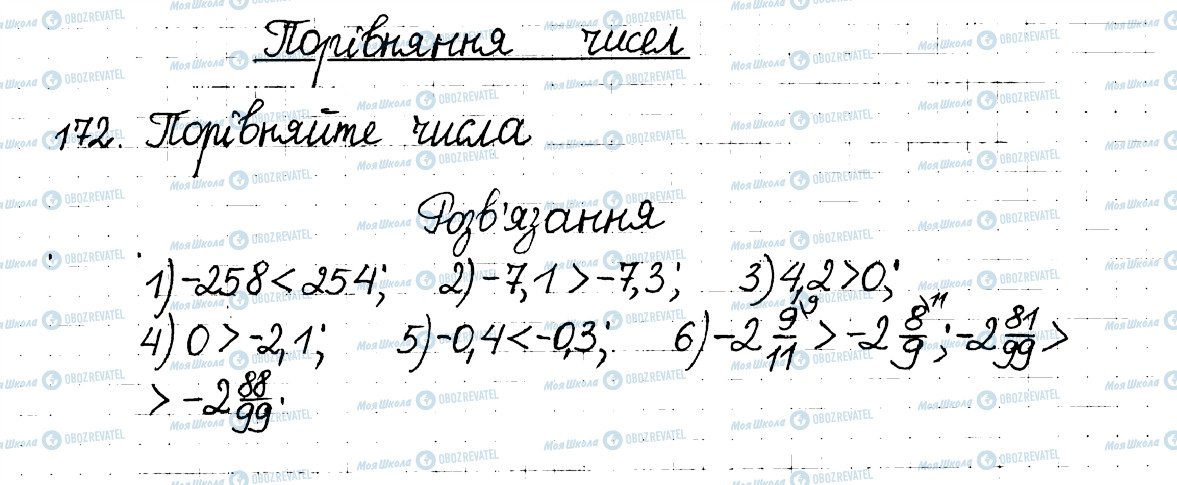 Порівняння чисел
172. Порівняйте числа
Розв'язання
1) -258 < 254; 2) -7,1 > -7,3; 3) 4,2 > 0;
4) 0 > -2,1; 5) -0,4 < -0,3; 6) -2 9\9/11 > -2 8\11/9; -2 81/99 >
> -2 88/99.